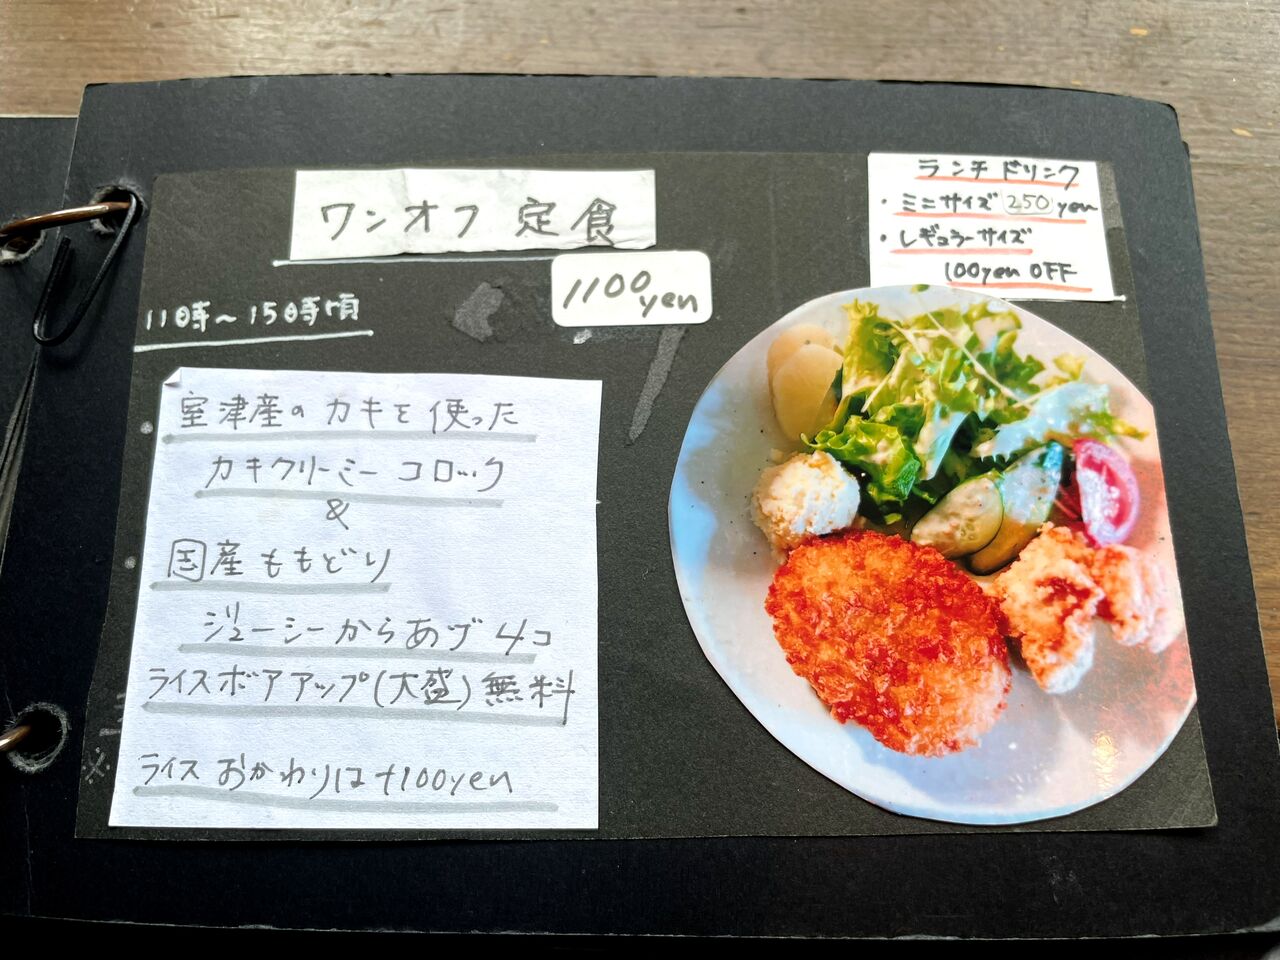 ワンオフ 定食
1100yen
ランチドリンク
・ミニサイズ 250yen
・レギュラーサイズ
100yen OFF
11時～15時頃
室津産のカキを使った
カキクリーミーコロッケ
&
国産ももどり
ジューシーからあげ 4コ
ライスボアアップ(大盛)無料
ライスおかわりは+100yen
※